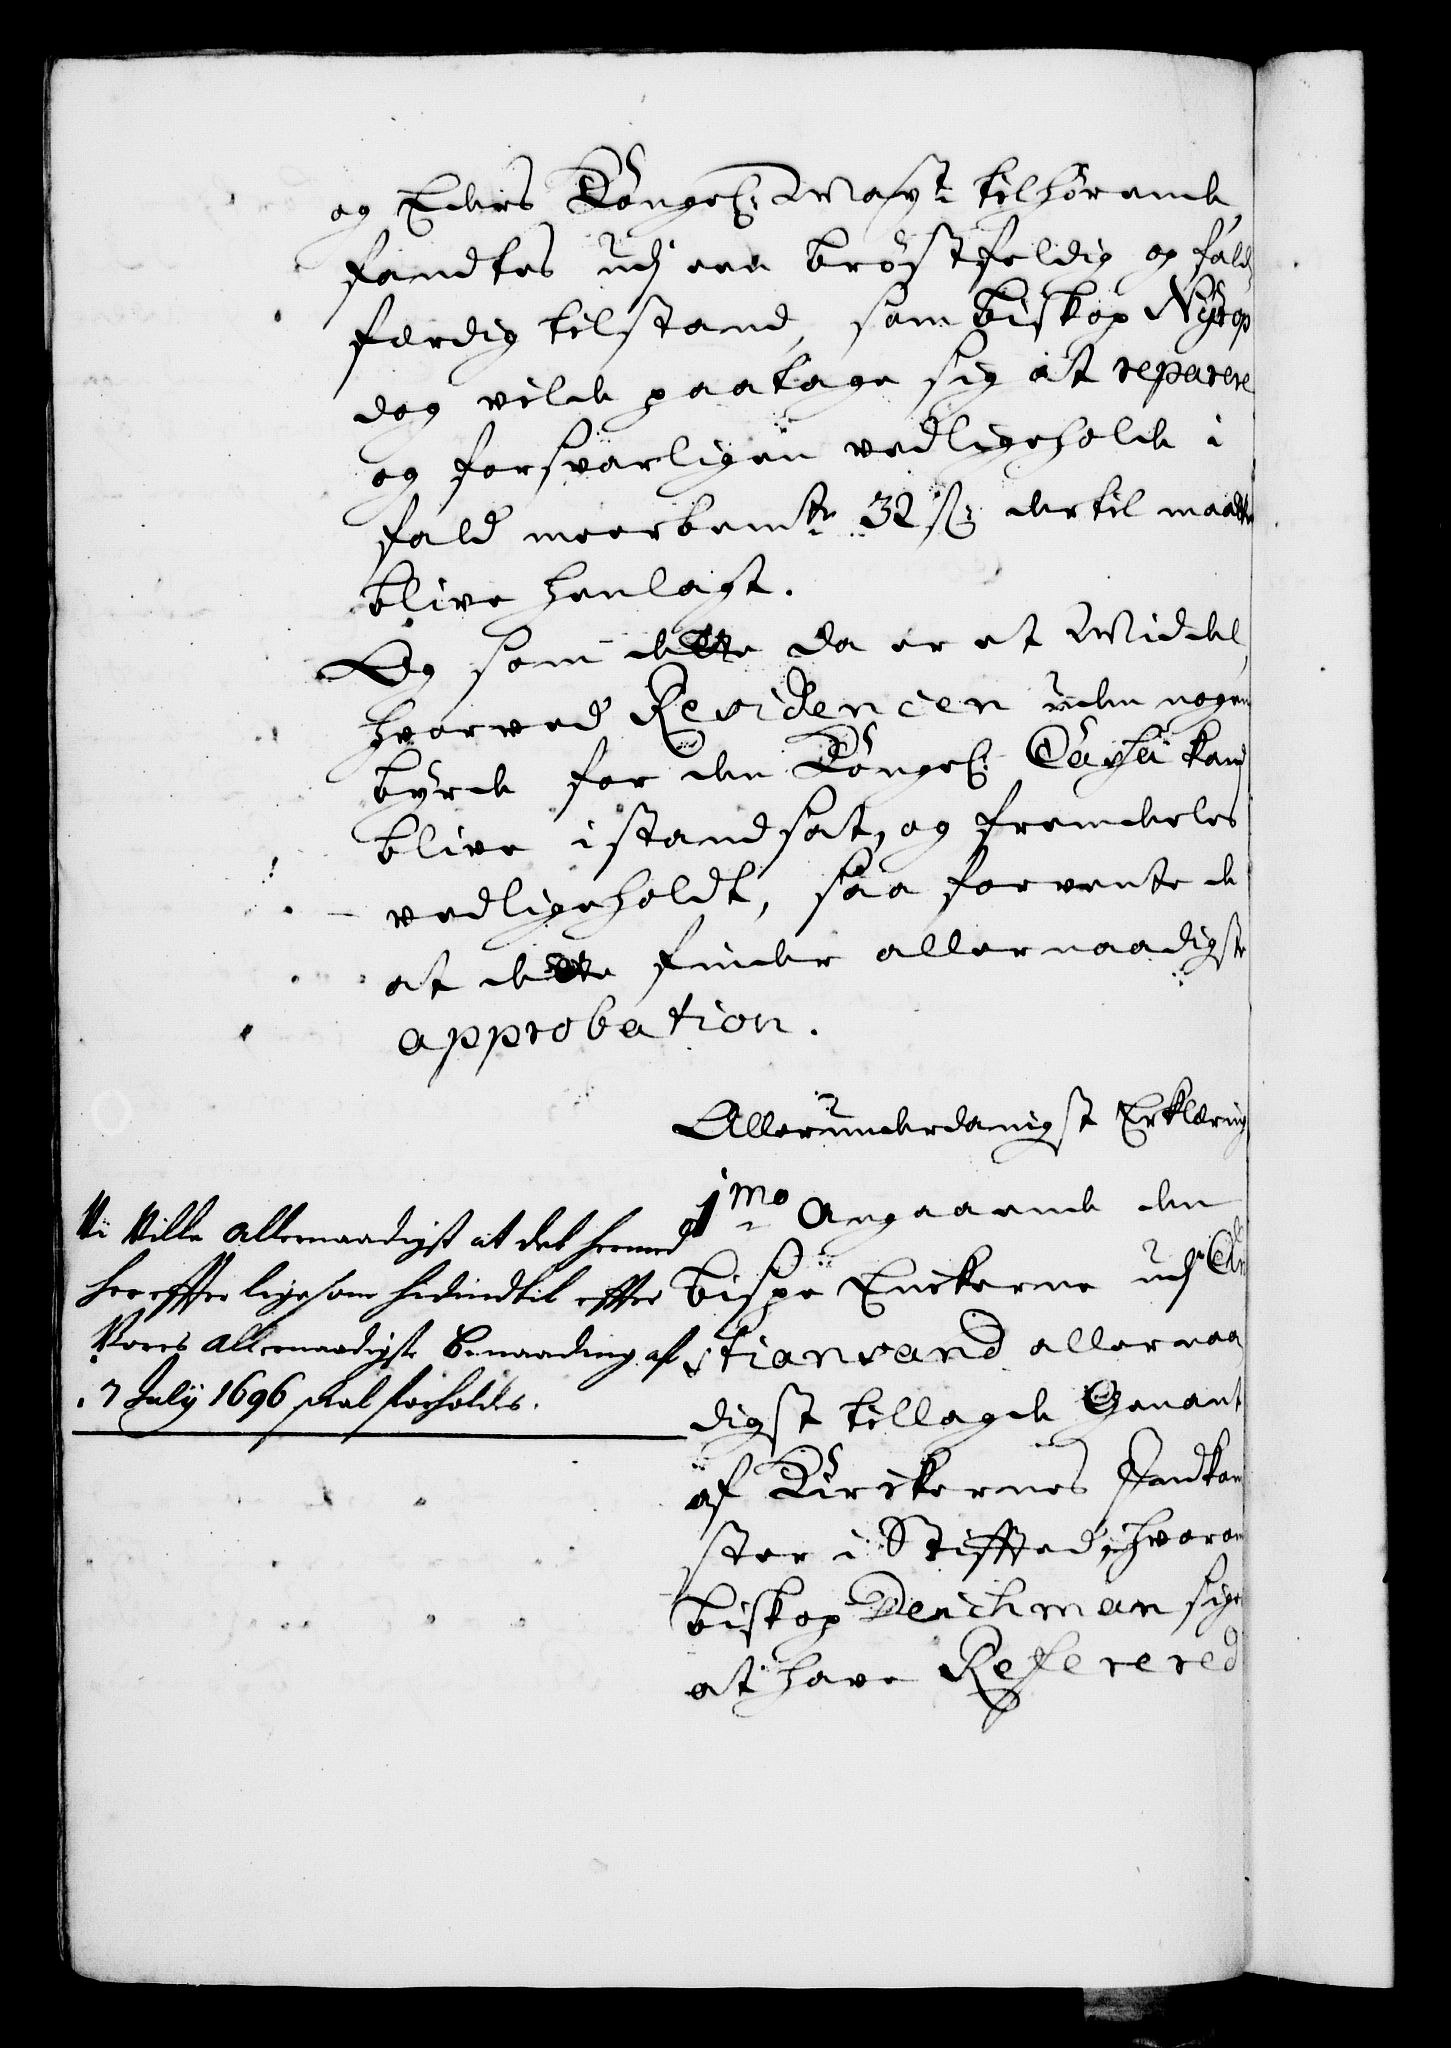 og Eders Kongel: Mayt: tilhørende
fandtes udj een brøstfeldig og fald
færdig tilstand, som biskop Nyrop
dog vilde paatage sig at reparere
og forsvarligen vedligeholde i
fald meerbemte: 32 ß: dertil maatte
blive henlagt.
Og som dette da er et Middel,
hvorved Residencen uden nogen
byrde for den Kongel: Cassa kand
blive istandsat, og fremdeles
vedligeholdt, saa forvente de
at dette finder allernaadigste
approbation.
Allerunderdanigst Erklæring
1mo Angaaende den
bispe Enckerne udj Chri
stiansand allernaa
digst tillagde Genant
af Kirckernes Indkom
ster i Stifftet, hvorom
biskop Deichman siger
at have Referered
Vi Ville allernaadigst at det hermed
hereffter ligesom hidindtil effter
Vores allernaadigste Benaading af
7 July 1696 skal forholdes.